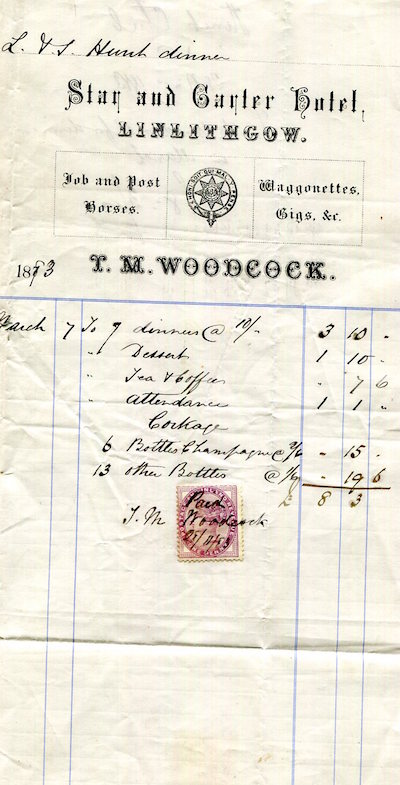 L. & L. Hunt dinner
Star and Garter Hotel,
LINLITHGOW.
Job and Post Horses.
HONI SOIT QUI MAL Y PENSE
Waggonettes, Gigs, &c.
1893 T. M. WOODCOCK.
March 7 To 7 dinners @ 10/- 3 10 "
" Dessert 1 10 "
" Tea & Coffee " 7 6
" Attendance 1 1 "
Corkage
6 Bottles Champagne @ 2/6 " 15 "
13 other Bottles @ 1/6 " 19 6
£ 8 3 "
Paid
T. M. Woodcock